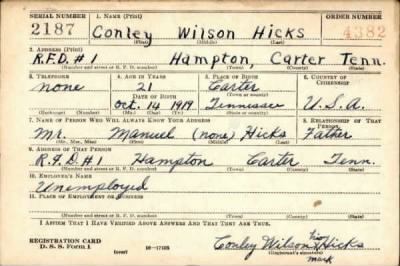 SERIAL NUMBER 1. NAME (Print) ORDER NUMBER
2187 Conley Wilson Hicks 4382
(First) (Middle) (Last)
2. ADDRESS (Print)
R.F.D. #1 Hampton, Carter Tenn.
(Number and street or R. F. D. number) (Town) (County) (State)
3. TELEPHONE 4. AGE IN YEARS 5. PLACE OF BIRTH 6. COUNTRY OF CITIZENSHIP
none 21 Carter
(Town or county)
DATE OF BIRTH
Oct. 14 1919 Tennessee U.S.A.
(Exchange) (Number) (Mo.) (Day) (Yr.) (State or country)
7. NAME OF PERSON WHO WILL ALWAYS KNOW YOUR ADDRESS 8. RELATIONSHIP OF THAT PERSON
Mr. Manuel (none) Hicks Father
(Mr., Mrs., Miss) (First) (Middle) (Last)
9. ADDRESS OF THAT PERSON
R.F.D #1 Hampton Carter Tenn.
(Number and street or R. F. D. number) (Town) (County) (State)
10. EMPLOYER'S NAME
Unemployed
11. PLACE OF EMPLOYMENT OR BUSINESS
(Number and street or R. F. D. number) (Town) (County) (State)
I AFFIRM THAT I HAVE VERIFIED ABOVE ANSWERS AND THAT THEY ARE TRUE.
REGISTRATION CARD
D. S. S. Form 1 (over) 16—17105 Conley Wilson his x Hicks
(Registrant's signature) mark